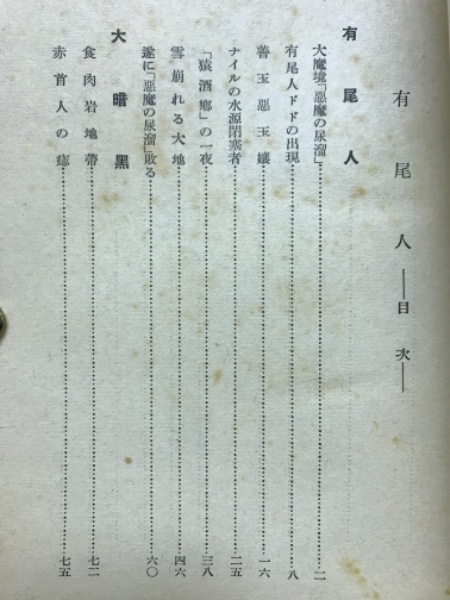 有尾人――目次――
有尾人
大魔境「悪魔の尿溜」……二
有尾人ドドの出現……八
善玉悪玉嬢……一六
ナイルの水源閉塞者……二五
「猿酒郷」の一夜……三八
雪崩れる大地……四六
遂に「悪魔の尿溜」敗る……六〇
大暗黒
食肉岩地帯……七二
赤首人の�……七五